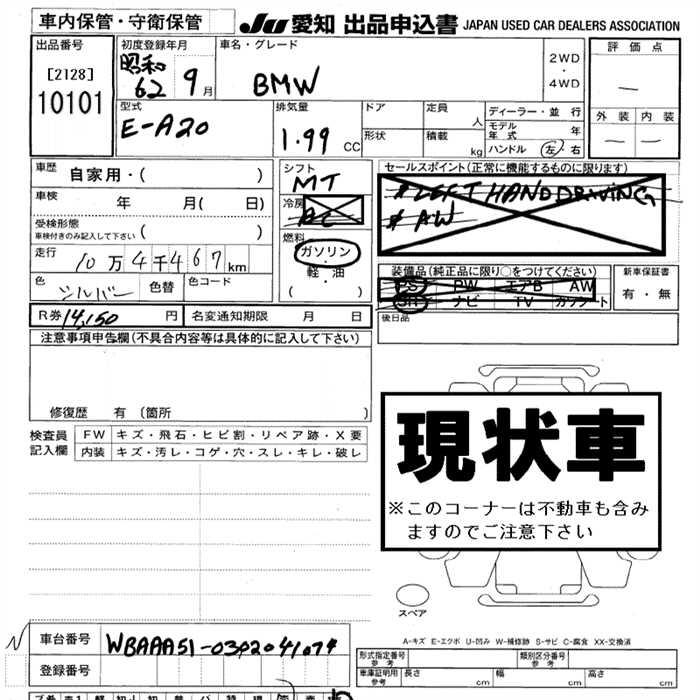 車内保管・守衛保管
JU 愛知 出品申込書 JAPAN USED CAR DEALERS ASSOCIATION
出品番号
[2128]
10101
初度登録年月
昭和
62 9月
車名・グレード
BMW
2WD
・
4WD
評価点
―
外装 内装
― ―
型式
E-A20
排気量
1.99 CC
ドア
定員 人
形状
積載 kg
ディーラー・並行
モデル年式 年
ハンドル 左・右
車歴 自家用・( )
車検 年 月( 日)
受検形態
車検付きのみ記入して下さい ( )
走行 10万4千467km
色 シルバー 色替 色コード
シフト
MT
冷房
AC
燃料
ガソリン
・
軽・油
( )
セールスポイント(正常に機能するものに限ります)
# LEFT HAND DRIVING
# AW
装備品(純正品に限り○をつけてください)
PS PW エアB AW
SR ナビ TV カワシート
新車保証書
有・無
R券 14,150 円 名変通知期限 月 日
後日品
注意事項申告欄(不具合内容等は具体的に記入して下さい)
修復歴 有(箇所 )
検査員
記入欄
FW キズ・飛石・ヒビ割・リペア跡・X要
内装 キズ・汚レ・コゲ・穴・スレ・キレ・破レ
現状車
※このコーナーは不動車も含み
ますのでご注意下さい
スペア
A-キズ E-エクボ U-凹み W-補修跡 S-サビ C-腐食 XX-交換済
N
車台番号 WBAAA51-0302041074
登録番号
形式指定番号
参考
類別区分番号
参考
車庫証明用
参考
長さ cm 幅 cm 高さ cm